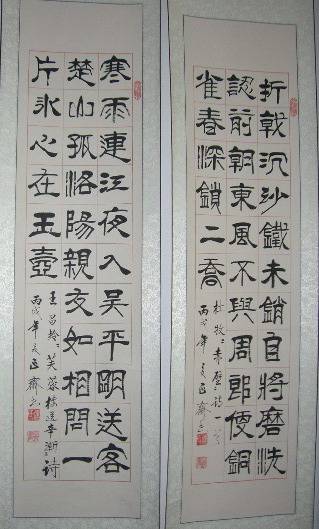 折戟沉沙鐵未銷自將磨洗
認前朝東風不與周郎便銅
雀春深鎖二喬
杜牧赤壁詩一首
丙戌年
寒雨連江夜入吳平明送客
楚山孤洛陽親友如相問一
片氷心在玉壺
王昌齡芙蓉樓送辛漸詩
丙戌年